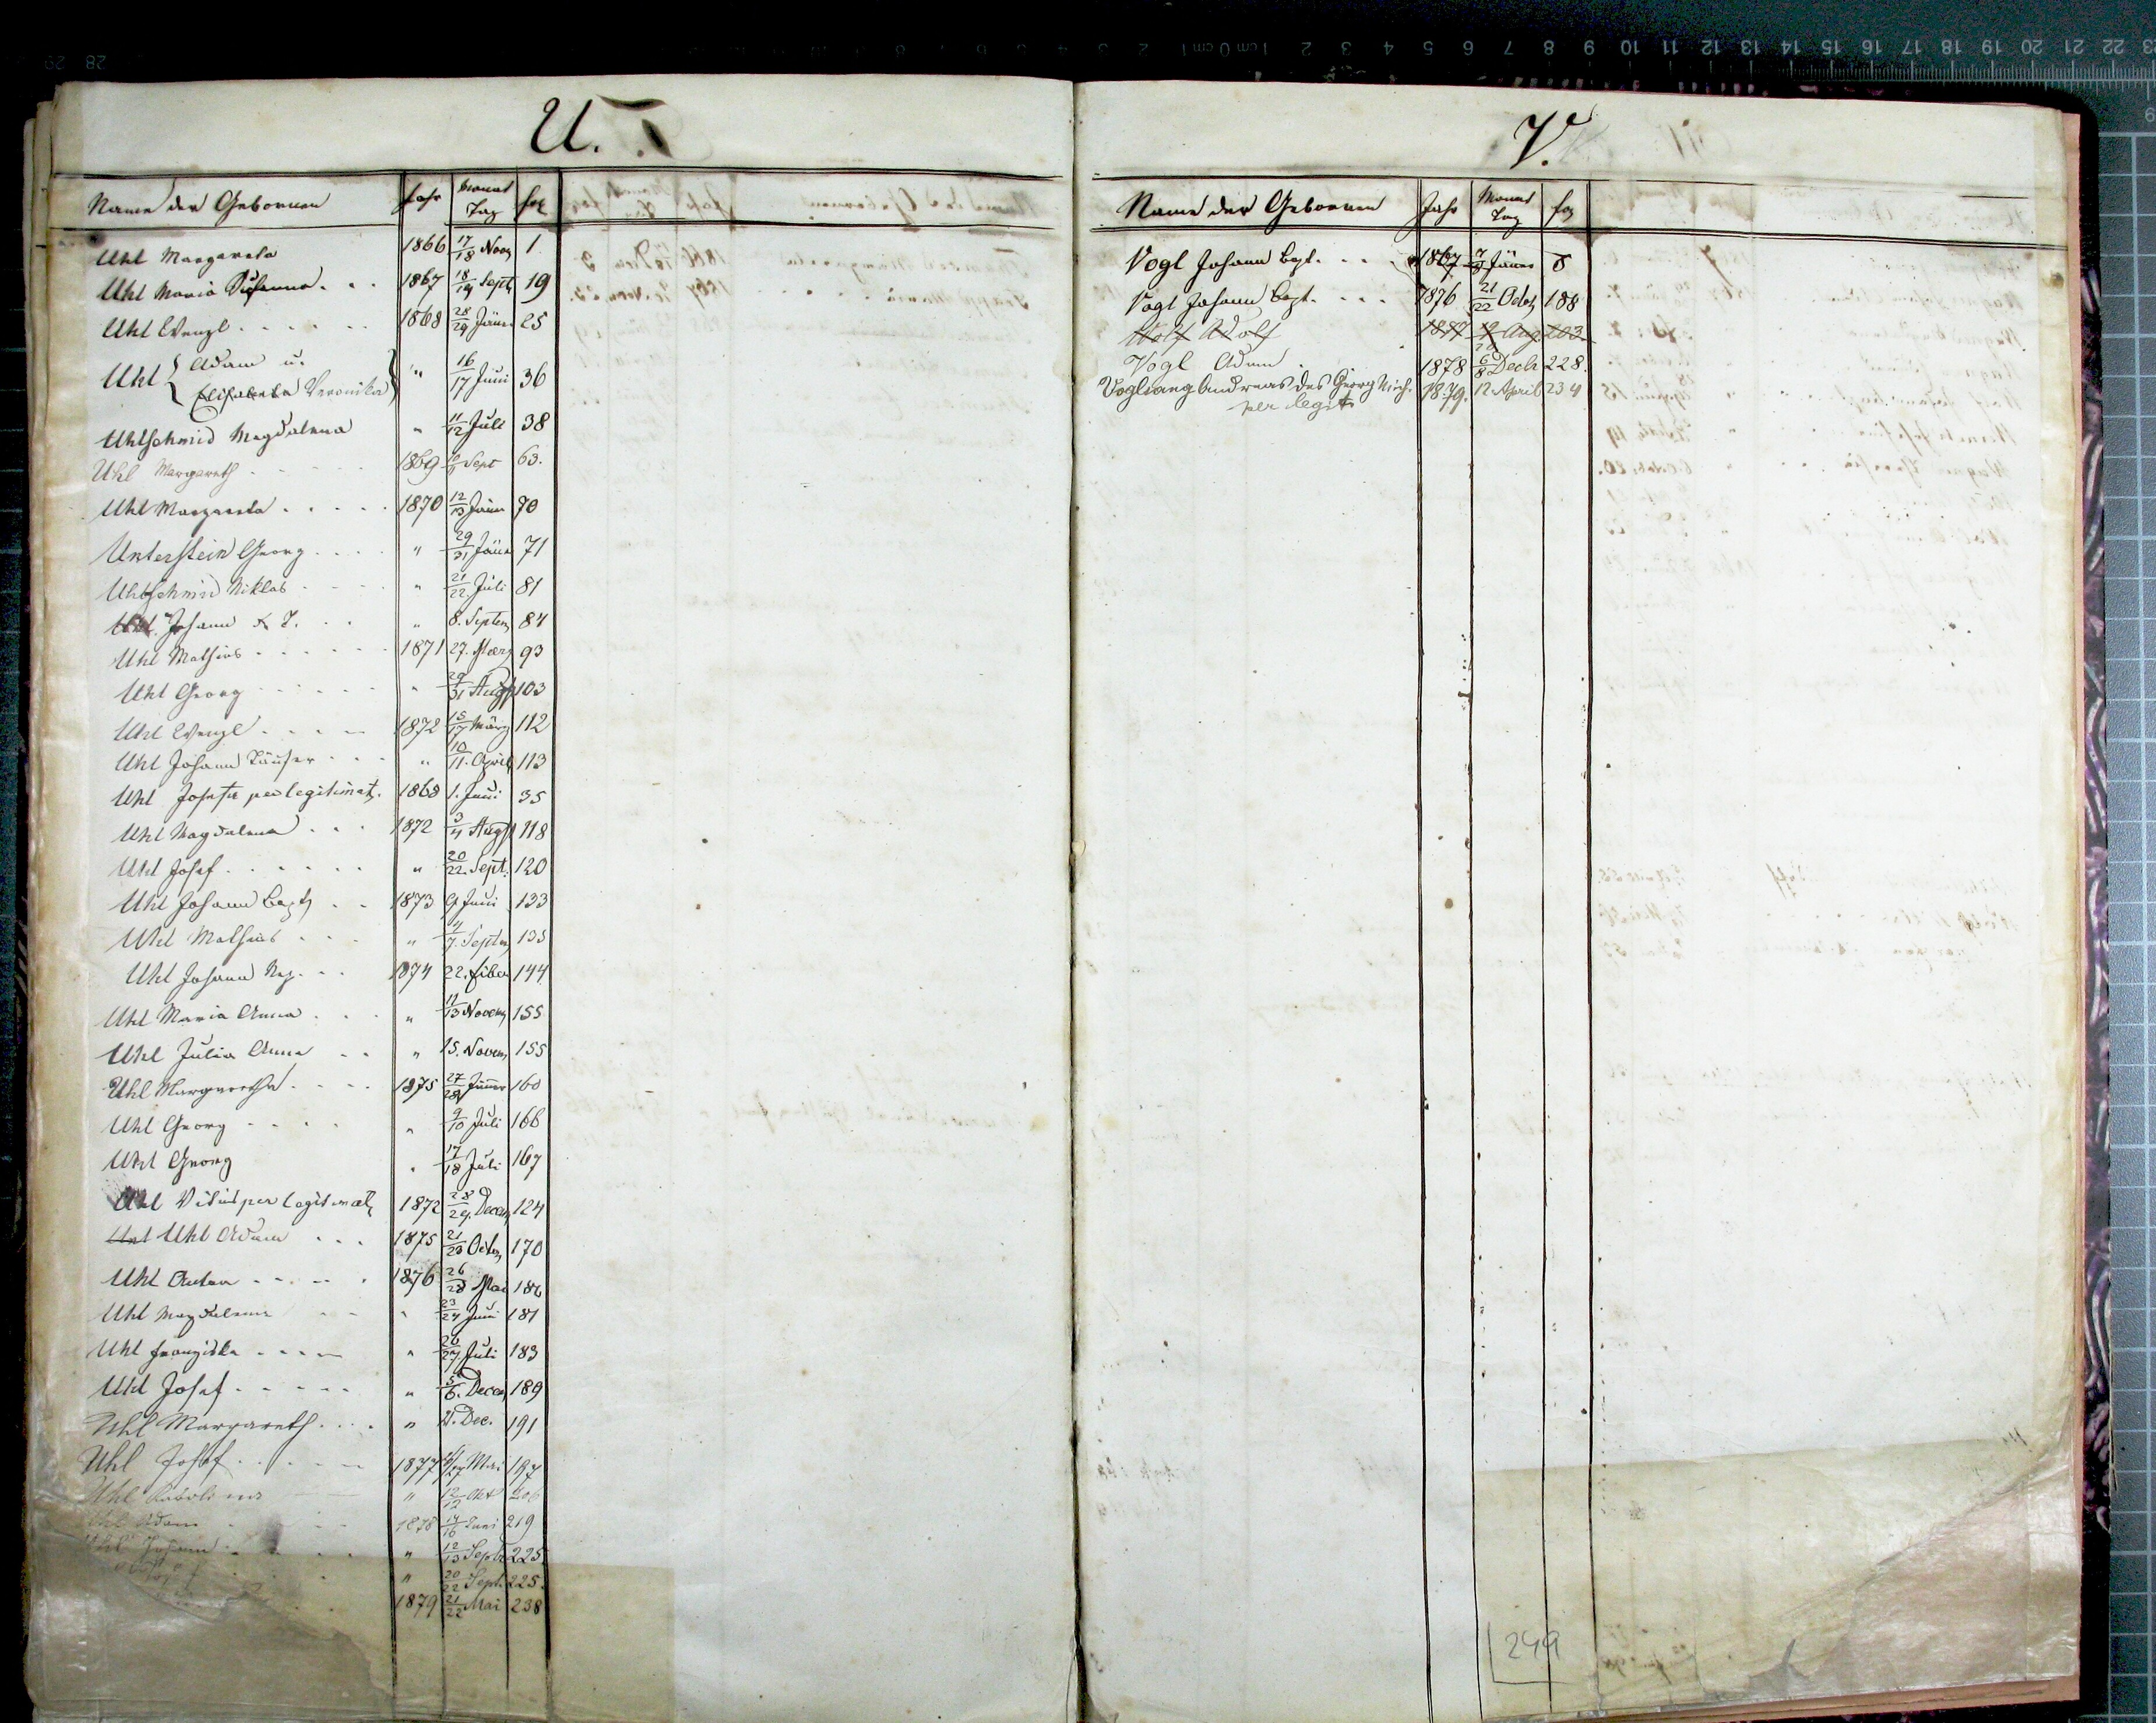 U.
Name der Gebornen Jahr Monat Tag fol
Uhl Margareta 1866 17/18 Nov 1
Uhl Maria Susanna . . 1867 18/19 Sept 19
Uhl Wenzl . . . . . 1868 28/29 Jäner 25
Uhl { Adam u. Elisabeta Veronika } " 16/17 Juni 36
Uhlschmid Magdalena " 11/12 Juli 38
Uhl Margareth . . . . 1869 Sept 63.
Uhl Margareta . . . . . 1870 12/13 Jäner 70
Unterstein Georg . . . . " 29/31 Jäner 71
Uhlschmid Niklas . . . . " 21/22 Juli 81
Uhl Johann . . " 8. Septem 84
Uhl Mathias . . . . . . 1871 27. März 93
Uhl Georg . . . . . . " 29/31 Aug 103
Uhl Wenzl . . . . 1872 15/17 März 112
Uhl Johann Täufer . . . " 10/11. April 113
Uhl Josefa per legitimat. 1868 1. Juni 35
Uhl Magdalena . . . 1872 3/4 Aug 118
Uhl Josef . . . . . . " 20/22. Sept. 120
Uhl Johann Bapt . . 1873 9 Juni 133
Uhl Mathias . . . " 4/7. Septem 135
Uhl Johann Nep. . . 1874 22. Feber 144
Uhl Maria Anna . . . " 11/13 Novem 155
Uhl Julia Anna . . " 15. Novem 155
Uhl Margaretha . . . . 1875 27/28 Jänner 160
Uhl Georg . . . . " 9/10 Juli 166
Uhl Georg " 17/18 Juli 167
Uhl Vitus per legitimat 1872 28/29. Decem 124
Uhl Uhl Adam . . . 1875 21/23 Octo 170
Uhl Anton . . . . . 1876 26/28 Mai 180
Uhl Magdalena . . " 23/24 Juni 181
Uhl Franziska . . . . " 26/27 Juli 183
Uhl Josef . . . . . " 5/6. Decem 189
Uhl Margareth . . . " 21. Dec. 191
Uhl Josef . . . . . 1877 Mai 197
Uhl Karolina " 12/12 Okt 206
Uhl Adam 1878 14/16 Juni 219
Uhl Johann . . . . " 12/13 Sept 225
" 20/22 Sept. 225.
1879 21/22 Mai 238
V.
Name der Gebornen Jahr Monat Tag fog
Vogl Johann Bapt. . . . 1867 Jäner 5
Vogl Johann Bapt. . . . 1876 21/22 Octob 188
Wolf Adolf 1877 Aug 203.
Vogl Adam . 1878 6/8 Decb 228.
Voglsang Andreas des Georg 1879. 12 April 234
per legit
249